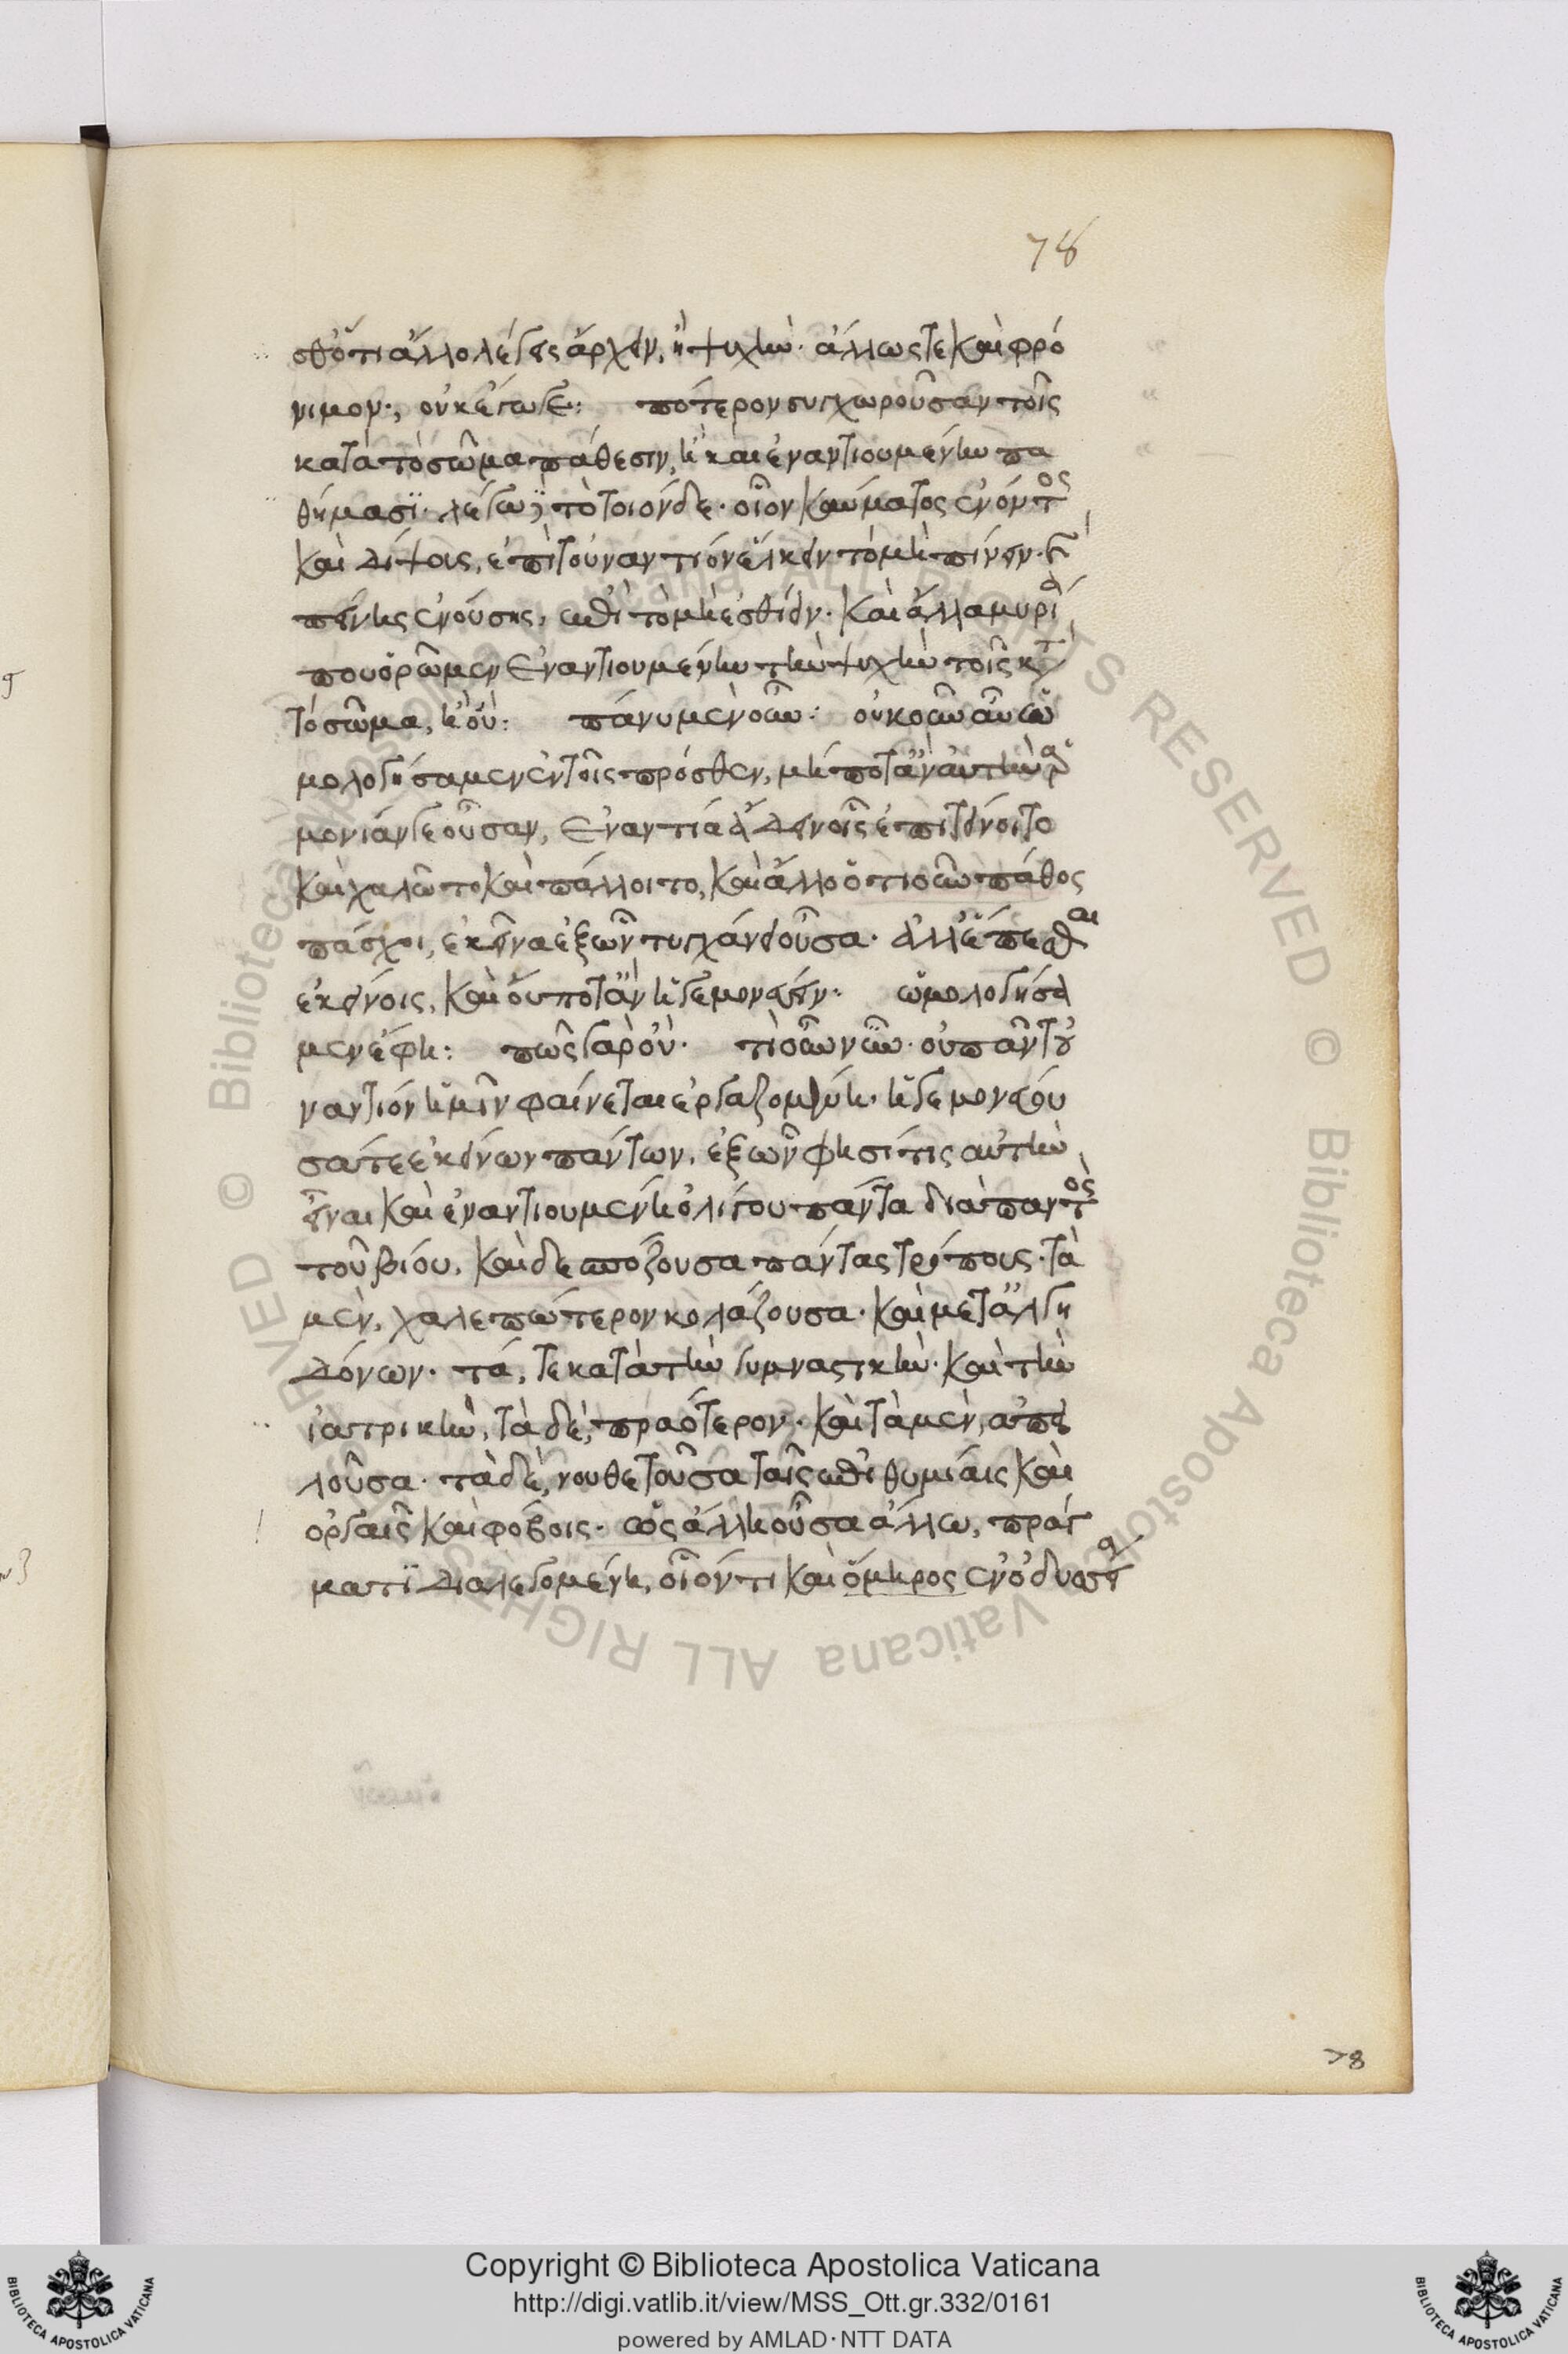 78
σθ᾽ ὅτι ἄλλο λέγεις ἄρχειν, ἢ ψυχὴν· ἄλλως τε καὶ φρό
νιμον·, οὐκ ἔγωγε: πότερον συγχωροῦσαν τοῖς
κατὰ τὸ σῶμα πάθεσιν, ἢ καὶ ἐναντιουμένην πα
θήμασϊ· λέγω δὲ τὸ τοιόνδε· οἷον καύματος ἐνόντος
καὶ δίψους, ἐπὶ τοὐναντίον ἕλκειν τὸ μὴ πίνειν· καὶ
πείνης ἐνούσης, ἐπὶ τὸ μὴ ἐσθίειν· καὶ ἄλλα μυρία
που ὁρῶμεν ἐναντιουμένην τὴν ψυχὴν τοῖς κατὰ
τὸ σῶμα, ἢ οὔ: πάνυ μὲν οὖν: οὐκοῦν αὖ ὡ
μολογήσαμεν ἐν τοῖς πρόσθεν, μήποτ᾽ ἂν αὐτὴν ἁρ
μονίαν γε οὖσαν, ἐναντία ἄδειν οἷς ἐπιτείνοιτο
καὶ χαλῶτο καὶ πάλλοιτο, καὶ ἄλλο ὁτιοῦν πάθος
πάσχοι, ἐκεῖνα ἐξ ὧν τυγχάνει οὖσα· ἀλλ᾽ ἕπεσθαι
ἐκείνοις, καὶ οὔποτ᾽ ἂν ἡγεμονεύειν· ὡμολογήσα
μεν ἔφη: πῶς γὰρ οὔ· τί οὖν νῦν· οὐ πᾶν τοὐ
ναντίον ἡμῖν φαίνεται ἐργαζομένη· ἡγεμονεύου
σά τε ἐκείνων πάντων, ἐξ ὧν φησί τις αὐτὴν
εἶναι καὶ ἐναντιουμένη ὀλίγου πάντα διὰ παντὸς
τοῦ βίου, καὶ δεσπόζουσα πάντας τρόπους· τὰ
μὲν, χαλεπώτερον κολάζουσα· καὶ μετ᾽ ἀλγη
δόνων· τά, τε κατὰ τὴν γυμναστικὴν· καὶ τὴν
ἰατρικὴν, τὰ δὲ, πραότερον· καὶ τὰ μὲν, ἀπει
λοῦσα· τὰ δὲ, νουθετοῦσα ταῖς ἐπιθυμίαις καὶ
ὀργαῖς καὶ φόβοις· ὡς ἄλλη οὖσα ἄλλω, πράγ
ματϊ διαλεγομένη, οἷόν τι καὶ ὅμηρος ἐν ὀδυσσεία
78
Copyright © Biblioteca Apostolica Vaticana
http://digi.vatlib.it/view/MSS_Ott.gr.332/0161
powered by AMLAD·NTT DATA